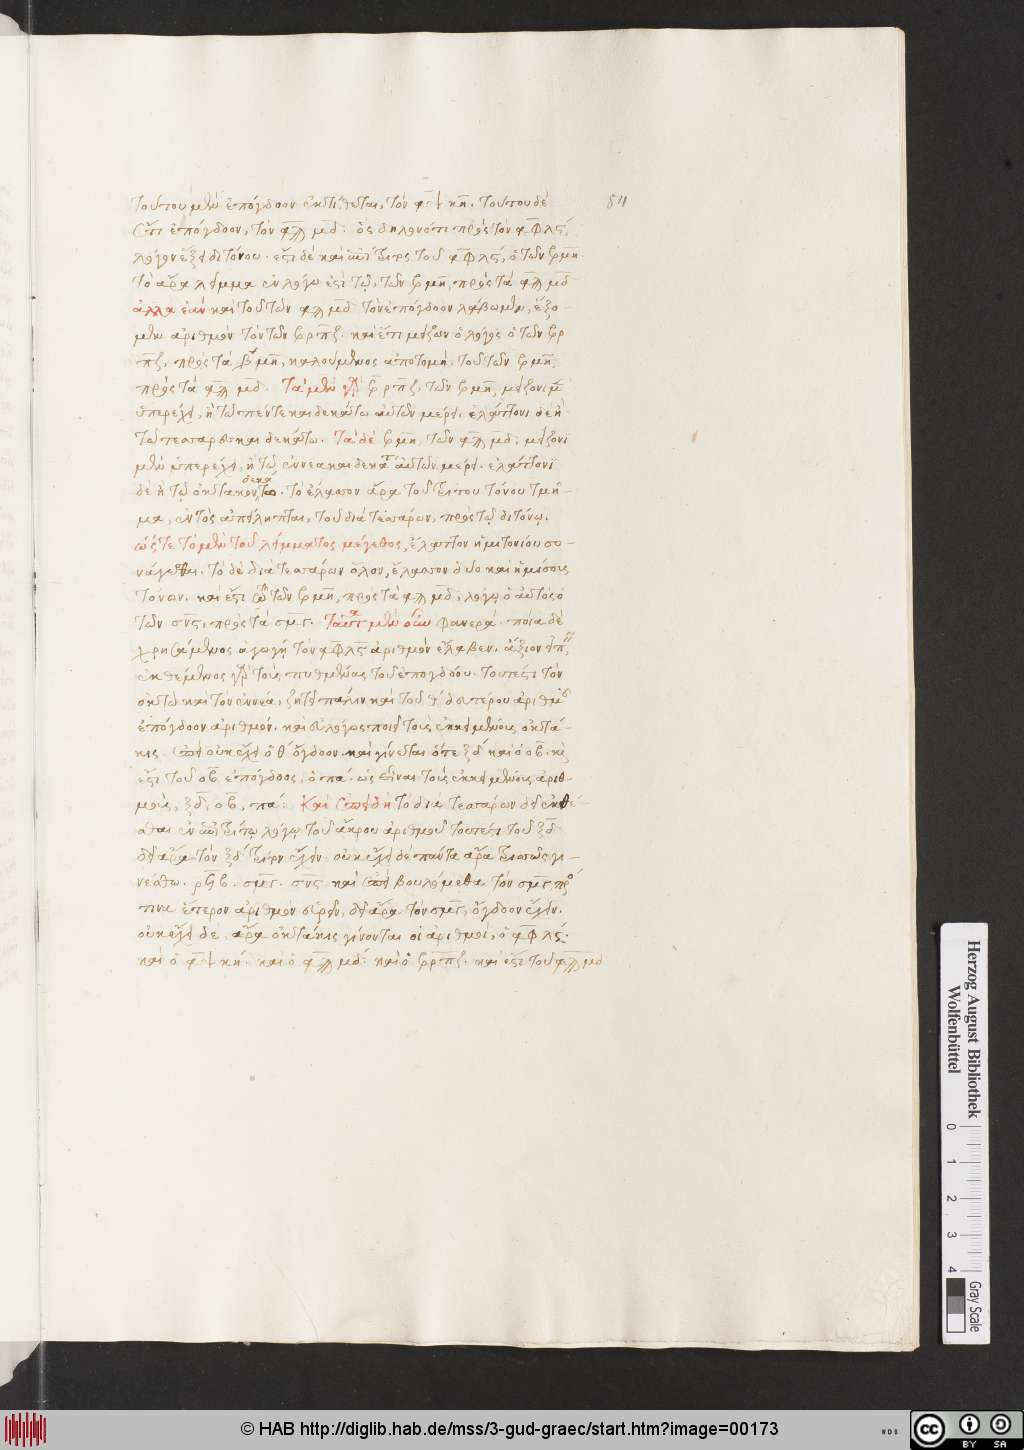 τούτου μὲν ἐπόγδοον ἐκτίθεται, τὸν ψκη. τούτου δὲ 84
ἔτι ἐπόγδοον, τὸν μδ: ὃς δηλονότι πρὸς τὸν αφλς,
λόγον ἕξει διτόνου. ἔστι δὲ καὶ τοῦ αφλς, ὁ τῶν βμη.
τὸ ἄρα λεῖμμα ἐν λόγω ἐστὶ τῶ, τῶν βμη, πρὸς τὰ μδ
ἀλλα ἐὰν καὶ τοῦ τῶν μδ τὸν ἐπόγδοον λάβωμεν, ἕξο-
μεν ἀριθμὸν τὸν τῶν βρπζ. καὶ ἔτι μείζων ὁ λόγος ὁ τῶν βρ
πζ, πρὸς τὰ βμη, καλούμενος ἀποτομὴ. τοῦ τῶν βμη,
πρὸς τὰ μδ. Τὰ μὲν βρπζ, τῶν βμη, μείζονι μὲν
ὑπερέχει, ἢ τῶ πέντε και δεκάτω αὐτῶν μέρει. ἐλάττονι δὲ ἢ
τῶ τεσσαρεσκαιδεκάτω. Τὰ δὲ βμη, τῶν μδ: μείζονι
μὲν ὑπερέχει, ἢ τῶ ἐννεακαιδεκάτ αὐτῶν μέρει. ἐλάττονι
δὲ ἢ τῶ ὀκτωκαιδεκάτω. τὸ ἔλασσον ἄρα τοῦ τρίτου τόνου τμῆ-
μα, ἐντὸς ἀπείληπται, τοῦ διὰ τεσσάρων, πρὸς τῶ διτόνω.
ὥστε τὸ μὲν τοῦ λείμματος μέγεθος, ἔλαττον ἡμιτονίου συ-
νάγεσθαι. τὸ δὲ διὰ τεσσάρων ὅλον, ἔλασσον δύο καὶ ἡμίσους
τόνων. καὶ ἔστι τῶν βμη, πρὸς τὰ μδ, λόγω ὁ αὐτὸς ὁ
τῶν σνς, πρὸς τὰ σμγ. Ταῦτα μὲν οὖν φανερά. ποία δὲ
χρησάμενος ἀγωγῆ τὸν αφλς ἀριθμὸν ἔλαβεν, ἄξιον εἰπεῖν,
ἐκθέμενος τοὺς πυθμένας τοῦ ἐπογδόου. τουτέστι τὸν
ὀκτὼ καὶ τὸν ἐννέα, ζητεῖ πάλιν καὶ τοῦ θ δευτέρου ἀριθμοῦ
ἐπόγδοον ἀριθμόν. καὶ εὐλόγως ποιεῖ τοὺς ἐκκειμένους ὀκτά-
κις. ἐπεὶ οὐκ ἔχει ὁ θ ὄγδοον. καὶ γίνεται ὅτε ξδ καὶ ὁ οβ. καὶ
ἔστι τοῦ οβ ἐπόγδοος, ὁ πα. ὡς εἶναι τοὺς ἐκκειμένους ἀριθ-
μοὺς, ξδ, οβ, πα: Καὶ ἐπειδὴ τὸ διὰ τεσσάρων δεῖ ἐκθέ-
σθαι ἐν ἐπιτρίτω λόγω τοῦ ἄκρου ἀριθμοῦ τουτέστι τοῦ ξδ
δεῖ ἄρα τὸν ξδ τρίτον ἔχειν. οὐκ ἔχει δὲ πάντα ἄρα τριπλῶς γι-
νέσθω. ρϟβ. σμς. σνς. καὶ ἐπεὶ βουλόμεθα τὸν σμγ πρὸς
τινα ἕτερον ἀριθμὸν εὑρεῖν, δεῖ ἄρα τὸν σμγ, ὄγδοον ἔχειν.
οὐκ ἔχει δέ, ἄρα ὀκτάκις γίνονται οἱ ἀριθμοί, ὁ αφλς.
καὶ ὁ ψκη. καὶ ὁ μδ: καὶ ὁ βρπζ. καὶ ἔστι τοῦ μδ
Herzog August Bibliothek
Wolfenbüttel
0 1 2 3 4
Gray Scale
© HAB http://diglib.hab.de/mss/3-gud-graec/start.htm?image=00173
WDB
cc BY SA